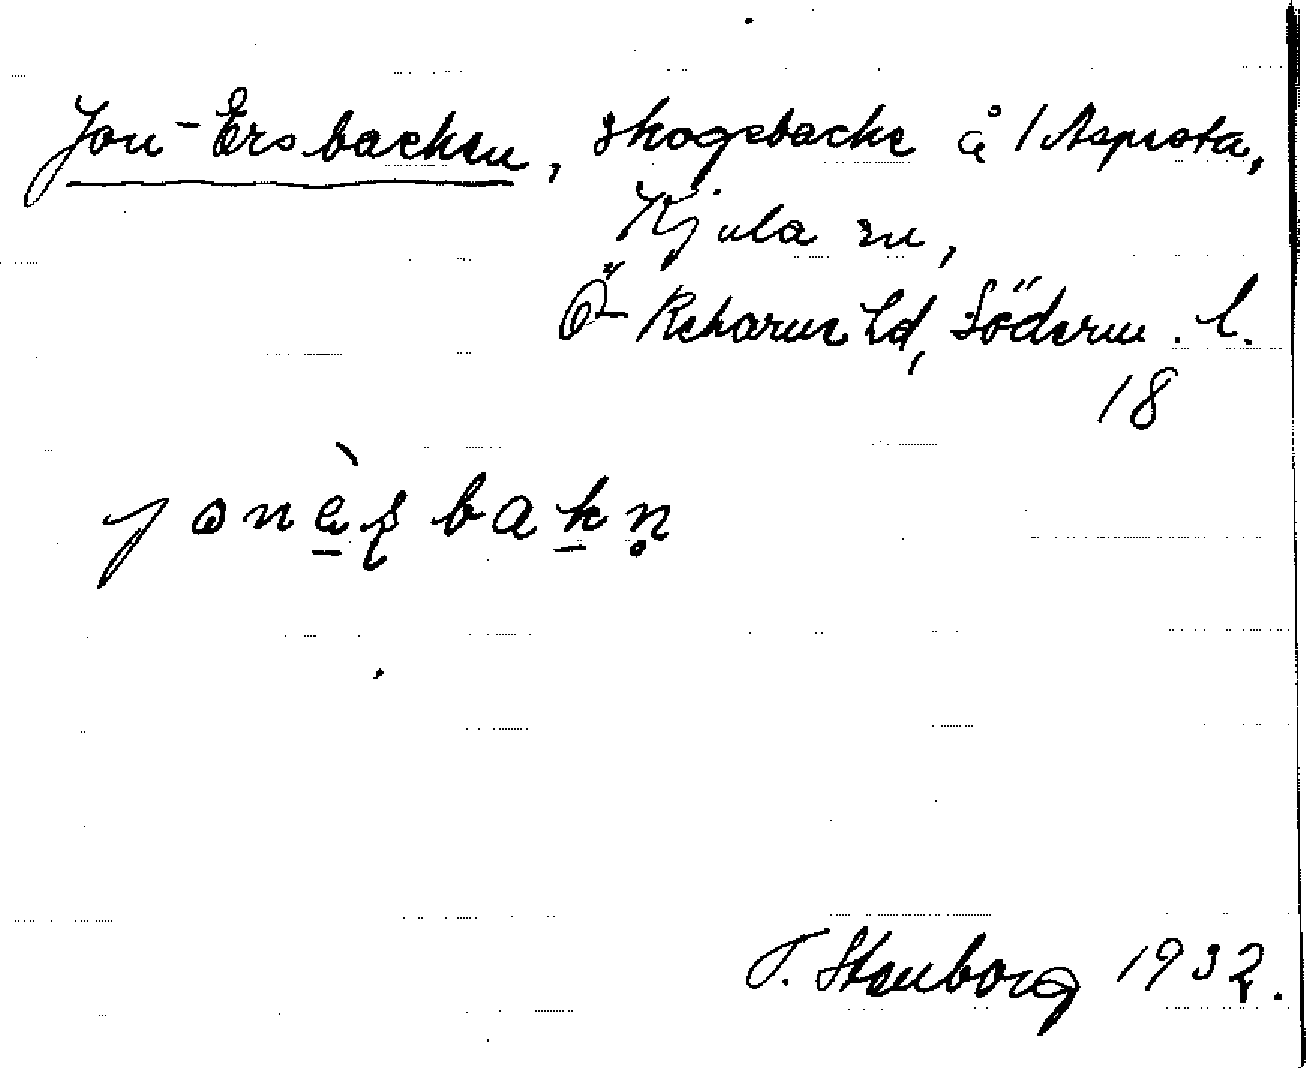 Jon-Ersbacken, skogsbacke å 1 Asprsta,
Kjula sn,
Ö-Rekarne hd, Söderm. l.
18
jonèʂbakn̥
T. Stenborg 1932.